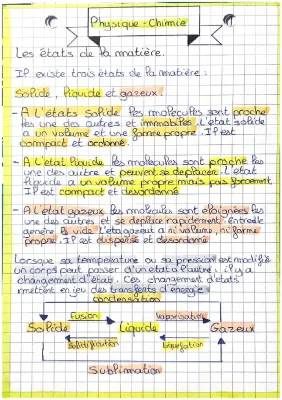 Physique - Chimie
Les états de la matière.
Il existe trois états de la matière :
Solide, liquide et gazeux
- A l'états solide les molécules sont proche
les une des autres et immobiles. L'état solide
a un volume et une forme propre. Il est
compact et ordonné.
- A l'état liquide les molécules sont proche les
une des autre et peuvent se déplacer. L'état
liquide a un volume propre mais pas forcément
Il est compact et désordonné
- A l'état gazeux les molécules sont éloignées les
une des autres et se déplace rapidement. Entre elle
génère le vide. L'état gazeux a ni volume, ni forme
propre. Il est dispersé et désordonné
Lorsque sa température ou sa pression est modifié
un corps peut passer d'un état à l'autre : il y a
changement d'état. Ces changement d'états
mettent en jeu des transferts d'énergie.
condensation
Fusion
Vaporisation
Solide
Liquide
Gazeux
Solidification
Liquéfaction
Sublimation